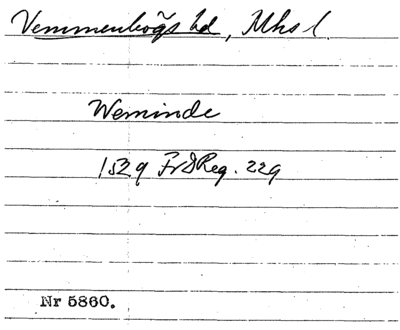 Vemmenhögs hd, Mhs l
Weminde
1529 FrdReg. 229
Nr 5860.